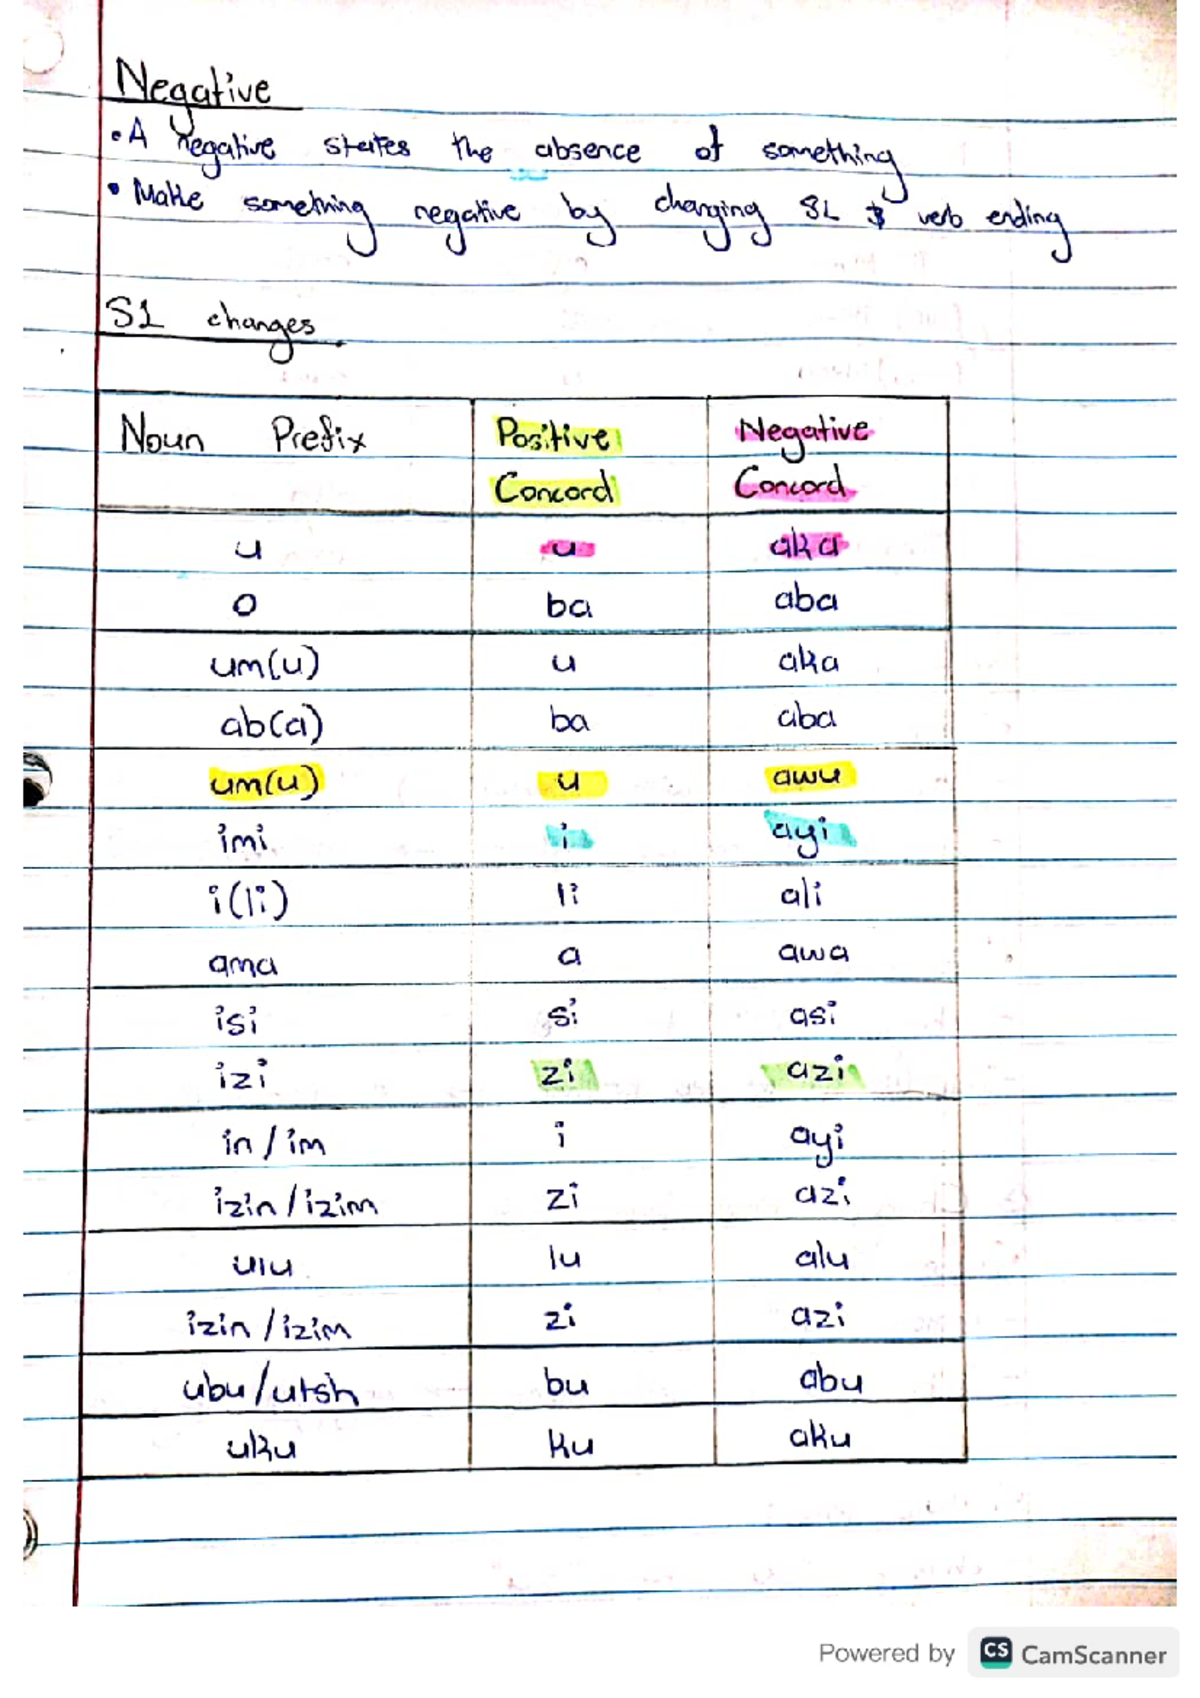 Negative
• A negative states the absence of something
• Make something negative by changing SL & verb ending
S1 changes
Noun Prefix Positive Concord Negative Concord
u u aka
o ba aba
um(u) u aka
ab(a) ba aba
um(u) u awu
imi i ayi
i(li) li ali
ama a awa
isi si asi
izi zi azi
in / im i ayi
izin / izim zi azi
ulu lu alu
izin / izim zi azi
ubu / utsh bu abu
uku ku aku
Powered by CS CamScanner